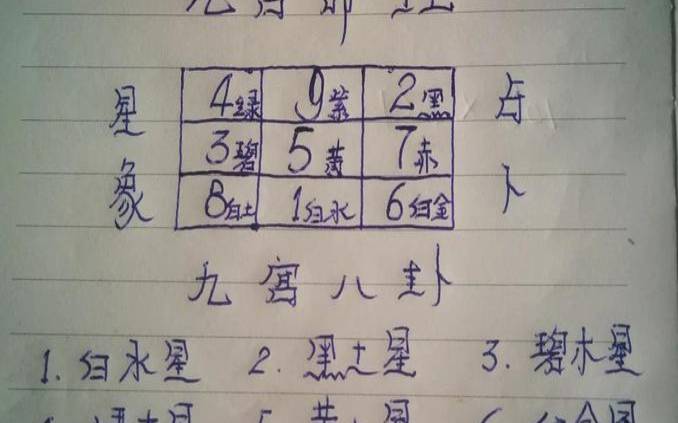 九宫
星 4绿 9紫 2黑 占
3碧 5黄 7赤
象 8白土 1白水 6白金 卜
九宫八卦
1. 白水星 2. 黑土星 3. 碧木星
5. 黄 星 6. 白金星